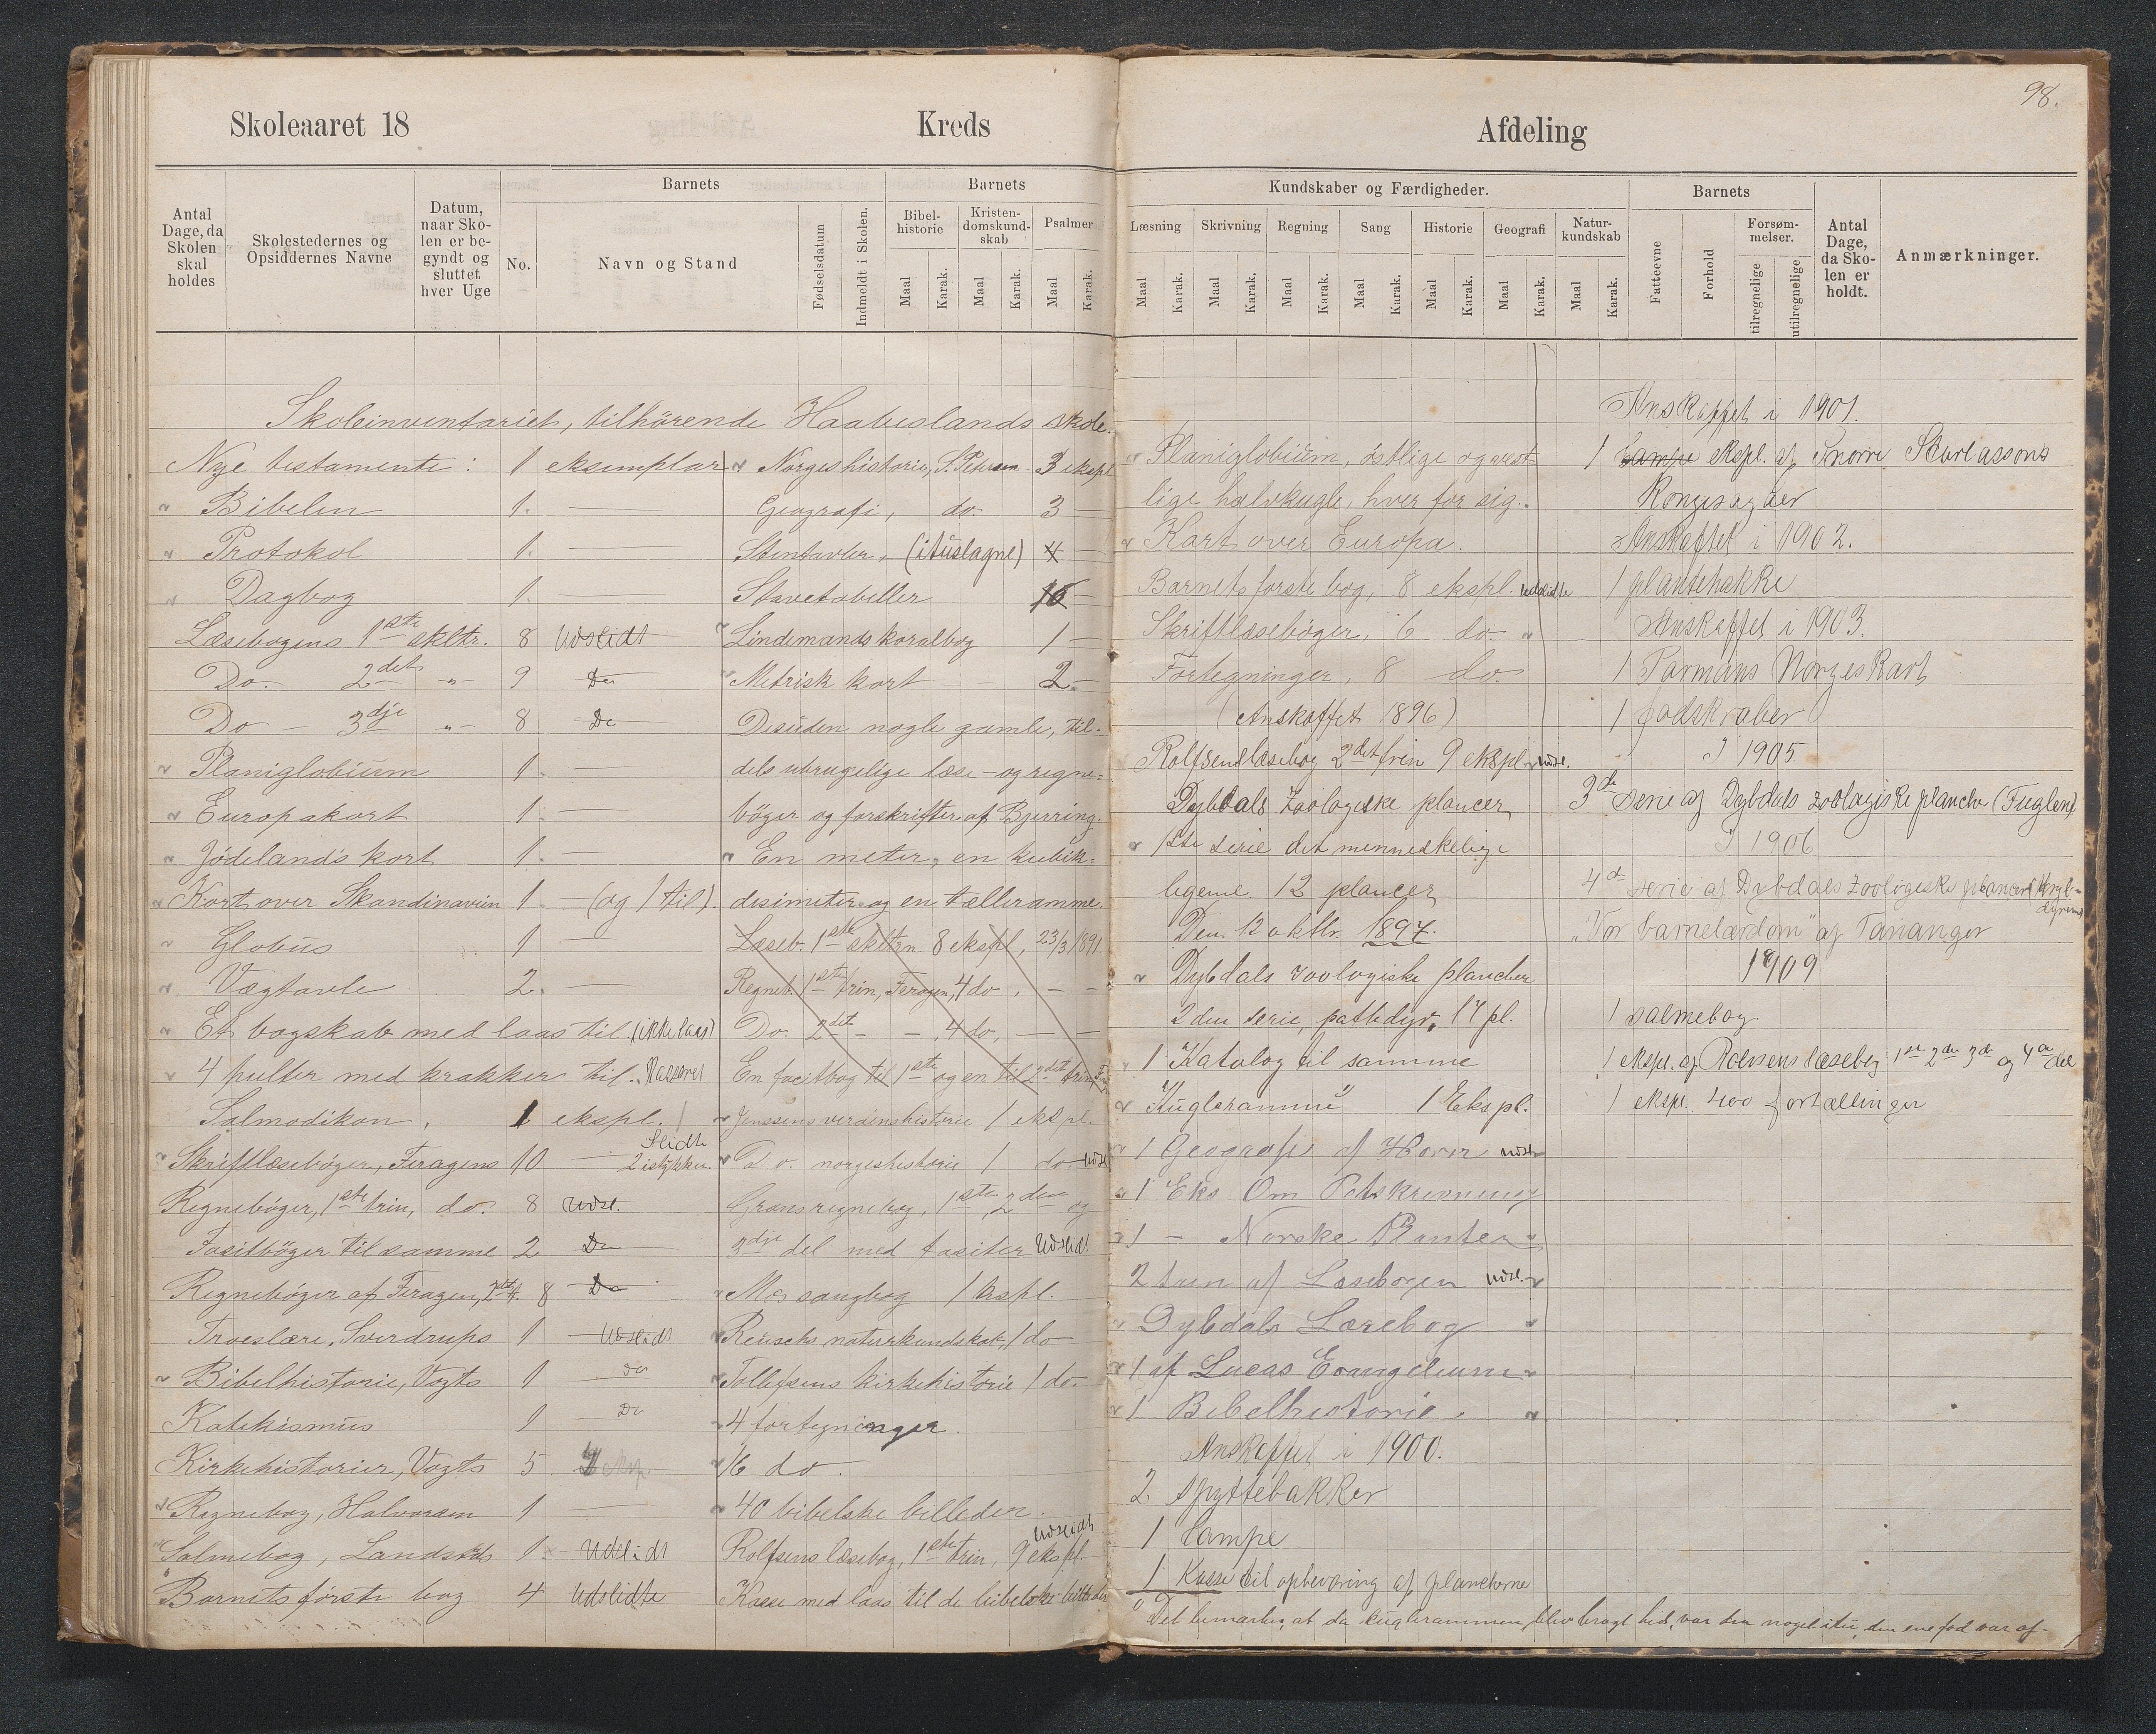 98.
Skoleaaret 18
Kreds
Afdeling
Antal Dage, da Skolen skal holdes
Skolestedernes og Opsiddernes Navne
Datum, naar Skolen er begyndt og sluttet hver Uge
Barnets
No.
Navn og Stand
Fødselsdatum
Indmeldt i Skolen.
Barnets
Bibelhistorie
Kristendomskundskab
Psalmer
Maal Karak. Maal Karak. Maal Karak.
Kundskaber og Færdigheder.
Læsning Skrivning Regning Sang Historie Geografi Naturkundskab
Maal Karak. Maal Karak. Maal Karak. Maal Karak. Maal Karak. Maal Karak. Maal Karak.
Barnets
Fatteevne
Forhold
Forsømmelser.
tilregnelige
utilregnelige
Antal Dage, da Skolen er holdt.
Anmærkninger.
Skoleinventariet, tilhörende Haabeslands skole.
Nye testamente: 1 eksemplar
" Bibelen 1. —
" Protokol 1. —
" Dagbog 1. —
Læsebogens 1ste skltr. 8 Udslidt
Do. 2det " 9 Do
Do — 3dje " 8 Do
" Planiglobium 1. —
" Europakort 1. —
" Jödelands kort 1. —
" Kort over Skandinavien 1. — (og 1 til).
" Globus 1 —
" Vægtavle 2. —
" Et bogskab med laas til. (ikke laas)
" 4 pulter med krakker til. Kasseret
Salmodikon, 1 ekspl.
" Skriftlæsebøger, Feragens 10 — Slidte 2 istykker.
Regnebøger, 1ste trin, do. 8 Udsl.
Fasitbøger til samme 2 Do
Regnebøger af Feragen, 2det 8 Do
Troeslære, Sverdrups 1 Udslidt
" Bibelhistorie, Vogts 1 do
Katekismus 1 Do
Kirkehistorier, Vogts 5
" Regnebog, Halvorsen 1 —
" Salmebog, Landstads 1. Udslidt
" Barnets første bog 4 Udslidte
" Norgeshistorie, S. Petersen 3 ekspl
Geografi, do. 3 —
Stentavler, (ituslagne) 4 —
Stavetabeller 16
" Lindemands koralbog 1 —
" Metrisk kart 2 —
Desuden nogle gamle, til-
dels ubrugelige læse- og regne-
bøger og forskrifter af Bjerring.
" En meter, en kubik-
desimeter og en tælleramme.
Læseb. 1ste skltrn 8 ekspl, 23/3 1891.
Regneb. 1ste trin, Feragen, 4 do, — —
Do. 2det — —, 4 do, — —
En facitbog til 1ste og en til 2det trin
" Jenssens verdenshistorie 1 ekspl.
" Do. norgeshistorie 1 do. udsl
Grans regnebog, 1ste, 2den og
3dje del med fasiter Udslidt
" Mos sangbog 1 kspl.
" Reusch naturkundskab, 1 do
" Tollefsens kirkehistorie 1 do.
" 4 fortegninger.
" 16 do.
" 40 bibelske billeder.
Rolfsens læsebog, 1ste trin, 9 ekspl. Udslidt
Kasse med laas til de bibelske billeder
" Planiglobium, östlige og vest-
lige halvkugle, hver for sig.
" Kart over Europa.
Barnets første bog, 8 ekspl. udslidte
Skriftlæsebøger, 6 do "
Fortegninger, 8 do.
(Anskaffet 1896)
Rolfsens læsebog 2det trin 9 ekspl. udsl.
Dybdals Zoologiske plancer
" 1ste serie det menneskelige
legeme 12 plancer
Den 12 oktbr. 1897.
" Dybdals zoologiske plancher
2den serie, pattedyr, 17 pl.
" 1 Katalog til samme
" Kugleramme 1) 1 Ekspl.
" 1 Geografi af Horn udsl
" 1 Eks Om Retskrivning
" 1 — Norske Planter "
2 trin af Læsebogen udsl.
" Dybdals Lærebog "
" 1 af Lucas Evangelium "
" 1 Bibelhistorie. "
Anskaffet i 1900.
2 Spyttebakker
1 Lampe
1 Kasse til opbevaring af plancherne
1) Det bemærkes, at da kuglerammen blev bragt hid, var den noget itu, den ene fod var af-
Anskaffet i 1901.
1 Lampe ekspl. af Snorre Sturlassons
Kongesagaer
Anskaffet i 1902.
1 plantehakke
Anskaffet i 1903.
1 Parmans Norgeskart
1 fodskraber
I 1905
3de serie af Dybdals zoologiske planche (Fuglene)
I 1906
4de serie af Dybdals zoologiske plancer (Krybdyrene)
"Vor barnelærdom" af Tananger
1909
1 salmebog
1 ekspl. af Rolfsens læsebog 1ste 2de 3de og 4de del
1 ekspl. 400 fortællinger